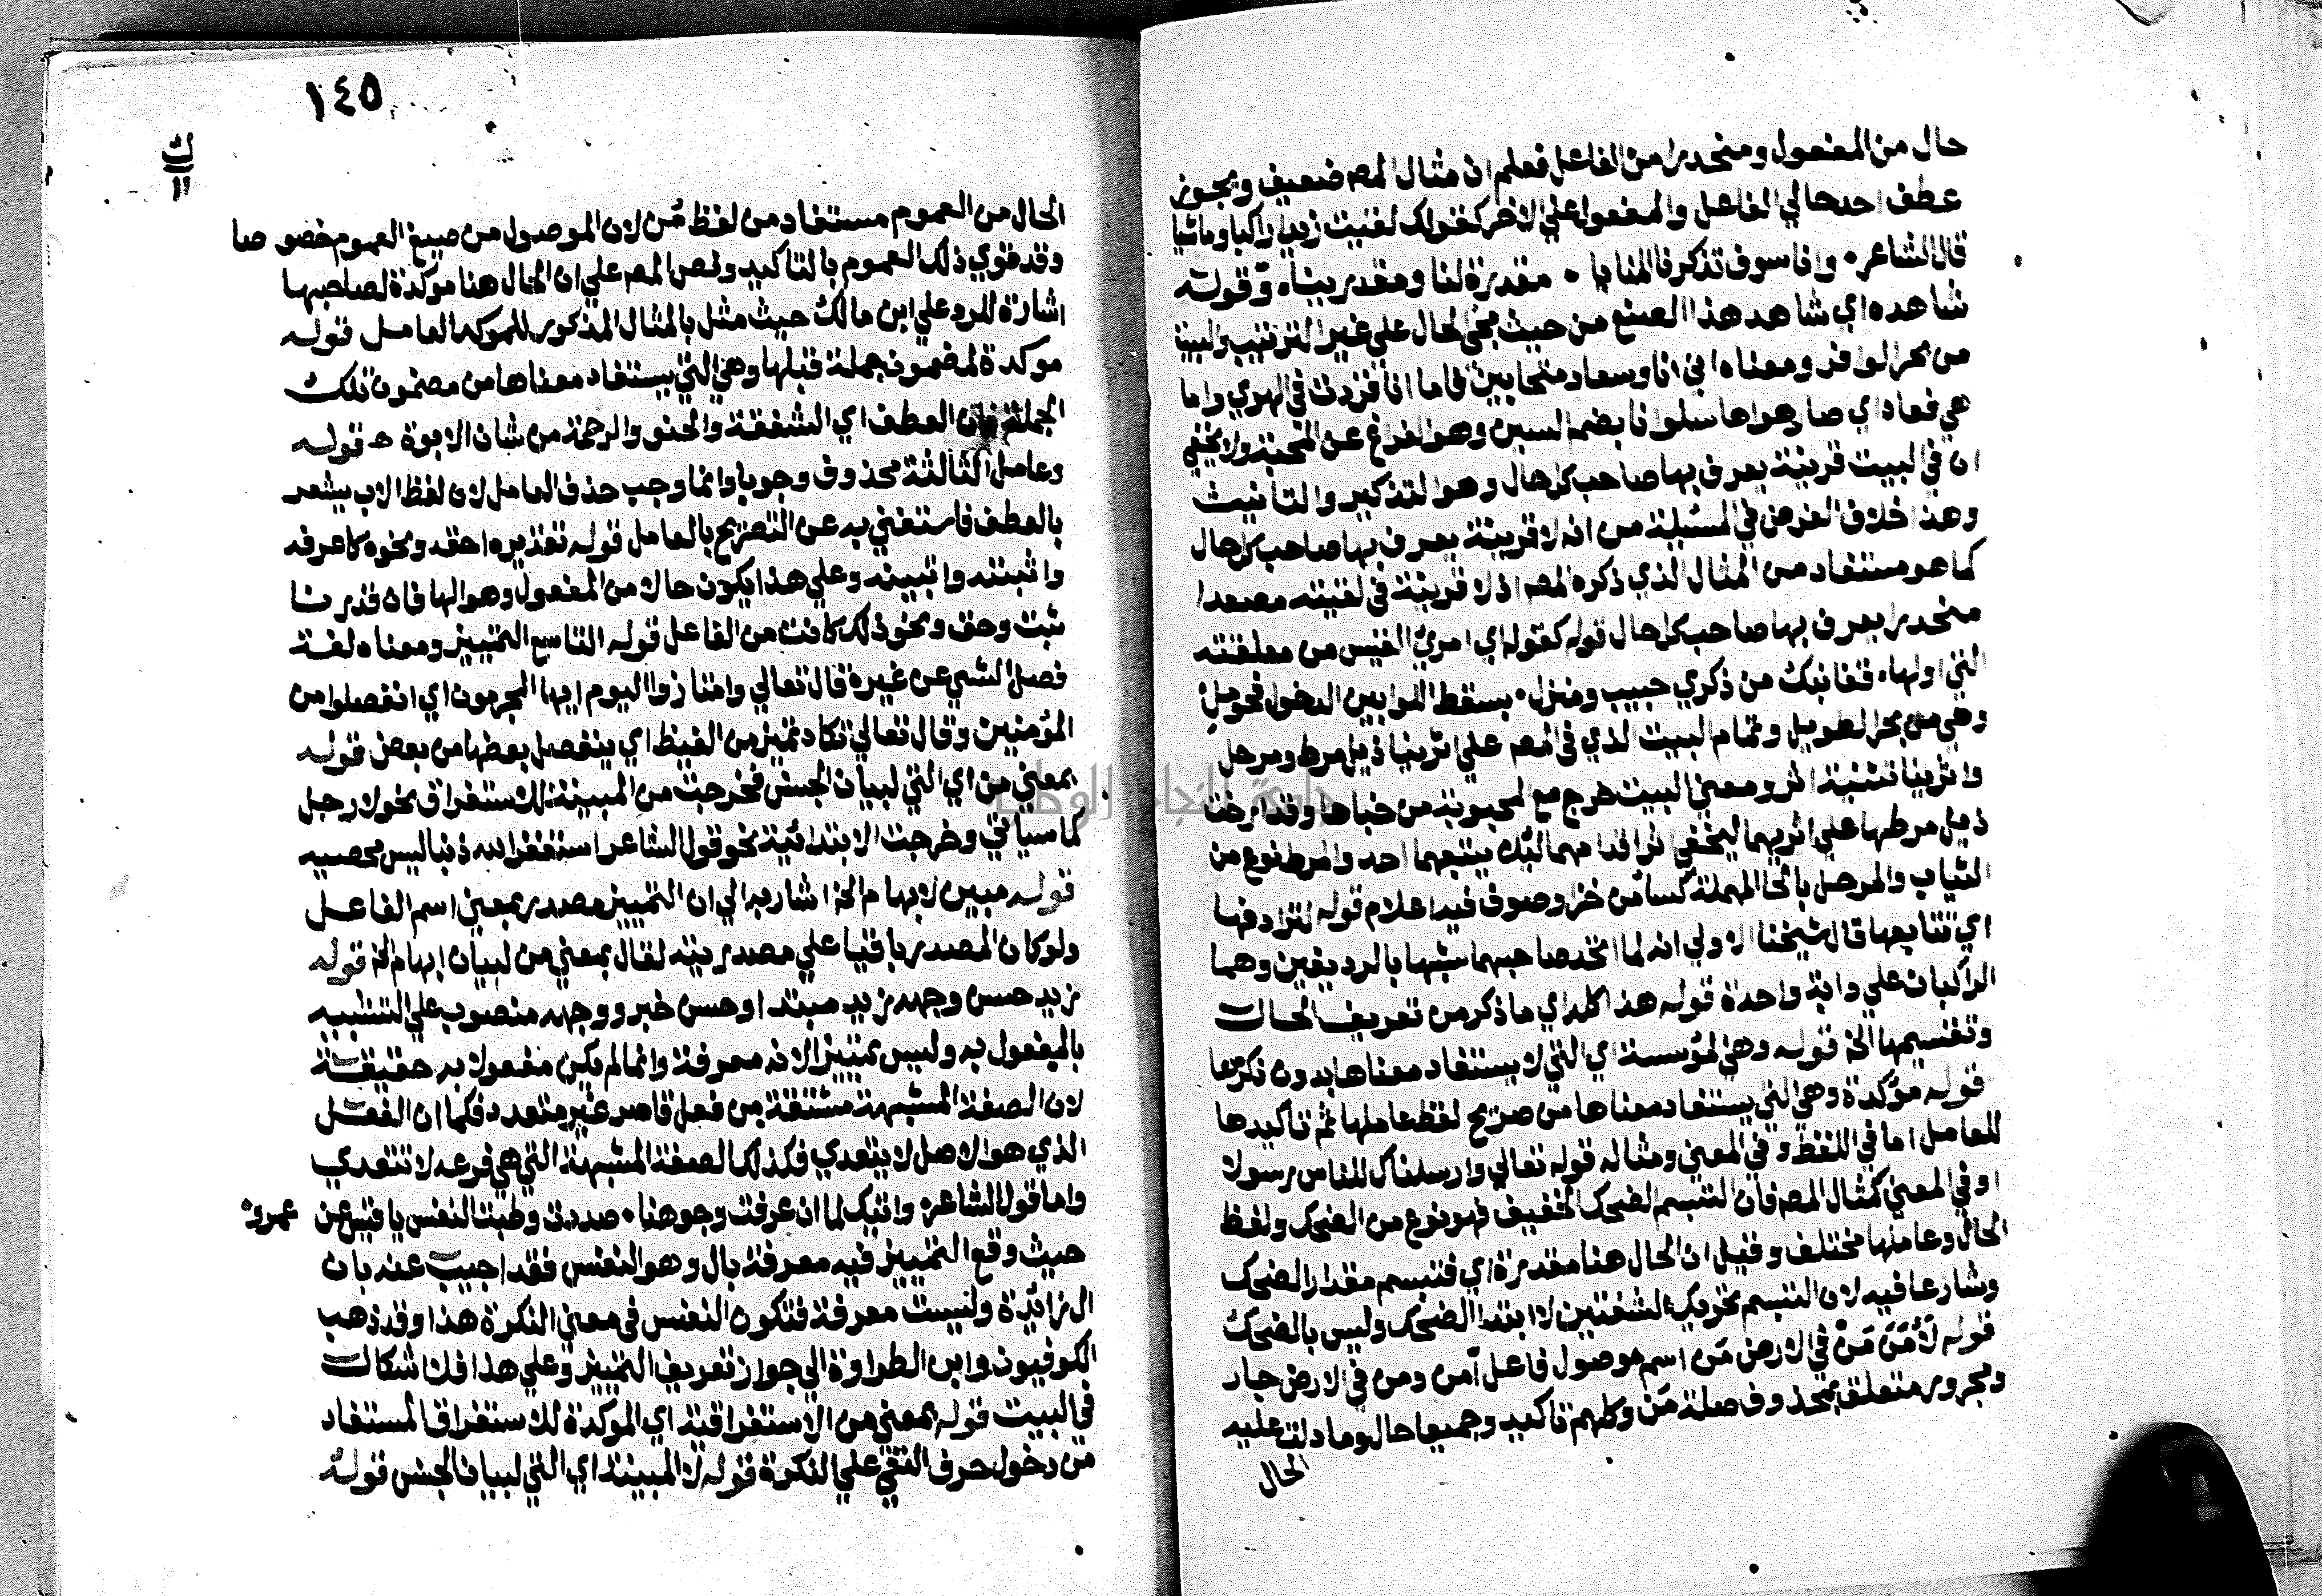 حال من المفعول ومنحدرا من الفاعل فعلم ان مثال المص ضعيف ويجوز
عطف احد حالي الفاعل والمفعول علي الاخر كقولك لقيت زيدا راكبا وماشيا
قال الشاعر • وانا سوف تدركنا المنايا • مقدرة لنا ومقدرينا • وقوله
شاهده اي شاهد هذا الصنع من حيث مجي الحال علي غير الترتيب والبيت
من بحر الوافر ومعناه اني انا وسعاد متحابين فاما انا فزدت في الهوي واما
هي فعاد اي صار هواها سلوانا بضم السين وهو الفراغ عن المحبة ولا يخفي
ان في البيت قرينة يعرف بها صاحب كل حال وهو التذكير والتانيث
وهذا خلاف الفرض في المسئلة من انه لا قرينة يعرف بها صاحب كل حال
كما هو مستفاد من المثال الذي ذكره المص اذ لا قرينة في لقيته مصعدا
منحدرا يعرف بها صاحب كل حال قوله كقوله اي امرئ القيس من معلقته
التي اولها • قفا نبك من ذكري حبيب ومنزل • بسقط اللوا بين الدخول فحومل
وهي من بحر الطويل وتمام البيت الذي في المص علي اثرينا ذيل مرط ومرحل
واثرينا تثنية اثر ومعني البيت خرج مع المحبوبة من خباها وقد ارخت
ذيل مرطها علي اثريهما ليخفي اثر اقدامهما ليلا يتبعهما احد والمرط نوع من
الثياب والمرحل بالحا المهملة كسا من خز او صوف فيه اعلام قوله لترادفها
اي تتابعها قال شيخنا الاولي انه لما اتحد صاحبهما شبها بالرديفين وهما
الراكبان علي دابة واحدة قوله هذا كله اي ما ذكر من تعريف الحال
وتقسيمها الخ قوله وهي المؤسسة اي التي لا يستفاد معناها بدون ذكرها
قوله مؤكدة وهي التي يستفاد معناها من صريح لفظ عاملها ثم تاكيدها
للعامل اما في اللفظ وفي المعني ومثاله قوله تعالي وارسلناك للناس رسولا
او في المعني كمثال المص فان التبسم الضحك الخفيف فهو نوع من الضحك ولفظ
الحال وعاملها مختلف وقيل ان الحال هنا مقدرة اي فتبسم مقدار الضحك
وشارعا فيه لان التبسم تحريك الشفتين لابتدا الضحك وليس بالضحك
قوله لآمن من في الارض من اسم موصول فاعل آمن ومن في الارض جار
ومجرور متعلق بمحذوف صلة من وكلهم تاكيد وجميعا حال وما دلت عليه
الحال
١٤٥
الحال من العموم مستفاد من لفظ من لان الموصول من صيغ العموم خصوصا
وقد قوي ذلك العموم بالتاكيد ونص المص علي ان الحال هنا موكدة لصاحبها
اشارة للرد علي ابن مالك حيث مثل بالمثال المذكور للموكد العامل قوله
موكدة لمضمون جملة قبلها وهي التي يستفاد معناها من مضمون تلك
الجملة فان العطف اي الشفقة والحنو والرحمة من شان الابوة ه قوله
وعامل الثالثة محذوف وجوبا وانما وجب حذف العامل لان لفظ الاب يشعر
بالعطف فاستغني به عن التصريح بالعامل قوله تقديره احقه ونحوه كاعرفه
واثبته واتبينه وعلي هذا يكون حالا من المفعول وهو الها فان قدرتا
ثبت وحق ونحو ذلك كانت من الفاعل قوله التاسع التمييز ومعناه لغة
فصل الشي عن غيره قال تعالي وامتازوا اليوم ايها المجرمون اي انفصلوا من
المؤمنين وقال تعالي تكاد تميز من الغيظ اي ينفصل بعضها من بعض قوله
بمعني من اي التي لبيان الجنس فخرجت من المبينة للاستغراق نحو لا رجل
كما سياتي وخرجت الابتدائية نحو قول الشاعر استغفر الله ذنبا لست محصيه
قوله مبين لابهام الخ اشار به الي ان التمييز مصدر بمعني اسم الفاعل
ولو كان المصدر باقيا علي مصدريته لقال بمعني من لبيان ابهام الخ قوله
زيد حسن وجهه زيد مبتدا وحسن خبر ووجهه منصوب علي التشبيه
بالمفعول به وليس تمييزا لانه معرفة وانما لم يكن مفعولا به حقيقة
لان الصفة المشبهة مشتقة من فعل قاصر غير متعدد فكما ان الفعل
الذي هو الاصل لا يتعدي فكذلك الصفة المشبهة التي هي فرعه لا تتعدي
واما قول الشاعر • واتيك لما ان عرفت وجوهنا • صددت وطبت النفس يا قيس عن عمرو •
حيث وقع التمييز فيه معرفة بال وهو النفس فقد اجيب عنه بان
ال زائدة وليست معرفة فتكون النفس في معني النكرة هذا وقد ذهب
الكوفيون وابن الطراوة الي جواز تعريف التمييز وعلي هذا فلا اشكال
في البيت قوله بمعني من الاستغراقية اي الموكدة للاستغراق المستفاد
من دخول حرف النفي علي النكرة قوله لا المبينة اي التي لبيان الجنس قوله